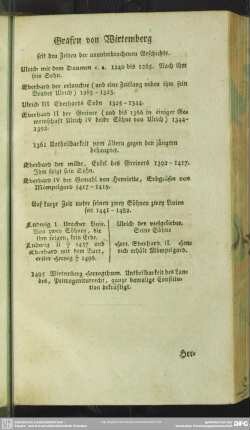 Grafen von Wirtemberg
seit den Zeiten der ununterbrochenen Geschichte.
Ulrich mit dem Daumen c. a. 1240 bis 1265. Nach ihm
sein Sohn.
Eberhard der erlauchte (und eine Zeitlang neben ihm sein
Bruder Ulrich) 1265 - 1325.
Ulrich III Eberhards Sohn 1325 - 1344.
Eberhard II der Greiner (und bis 1366 in einiger Ge-
meinschaft Ulrich IV beide Söhne von Ulrich) 1344-
1392.
1361 Untheilbarkeit vom ältern gegen den jüngern
behauptet.
Eberhard der milde, Enkel des Greiners 1392 - 1417.
Ihm folgt sein Sohn.
Eberhard IV der Gemahl von Henriette, Erbgräfin von
Mömpelgard 1417 - 1419.
Auf kurze Zeit unter seinen zwey Söhnen zwey Linien
seit 1441 - 1482.
Ludwig I. Uracher Linie.
Von zwey Söhnen, die
ihm folgen, kein Erbe.
Ludwig II † 1457 und
Eberhard mit dem Bart,
erster Herzog † 1496.
Ulrich der vielgeliebte.
Seine Söhne
Herz. Eberhard II. Hein-
rich erhält Mömpelgard.
1495 Wirtemberg Herzogthum. Untheilbarkeit des Lan-
des, Primogeniturrecht, ganze damalige Constitu-
tion bekräftigt.
Her-